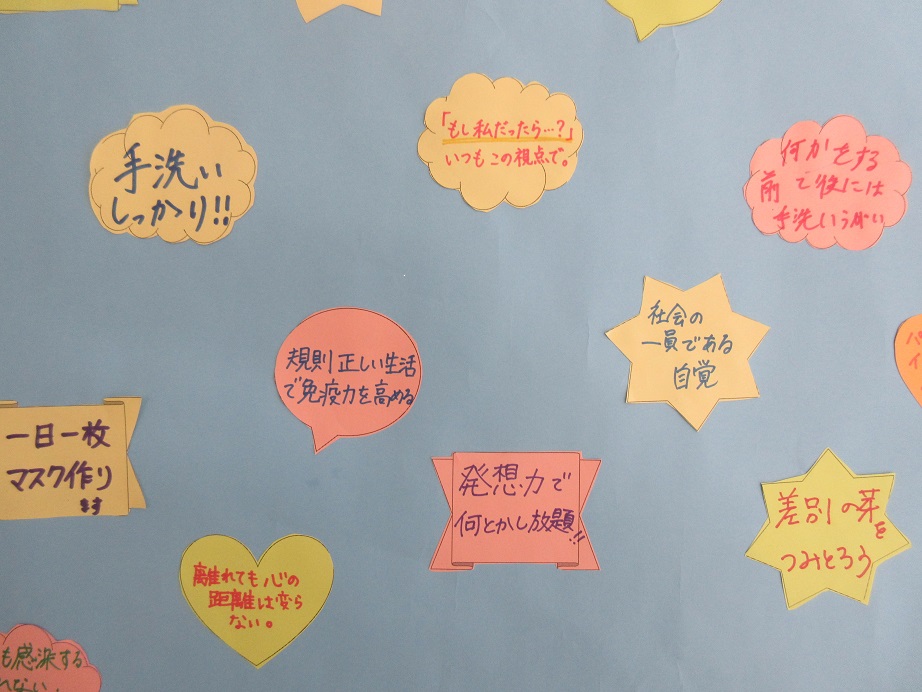 手洗い
しっかり!!
「もし私だったら…?」
いつもこの視点で。
何かをする
前で後には
手洗いうがい
社会の
一員である
自覚
規則正しい生活
で免疫力を高める
一日一枚
マスク作り
ます
発想力で
何とかし放題!!
差別の芽を
つみとろう
離れても心の
距離は変ら
ない。
も感染する
れない